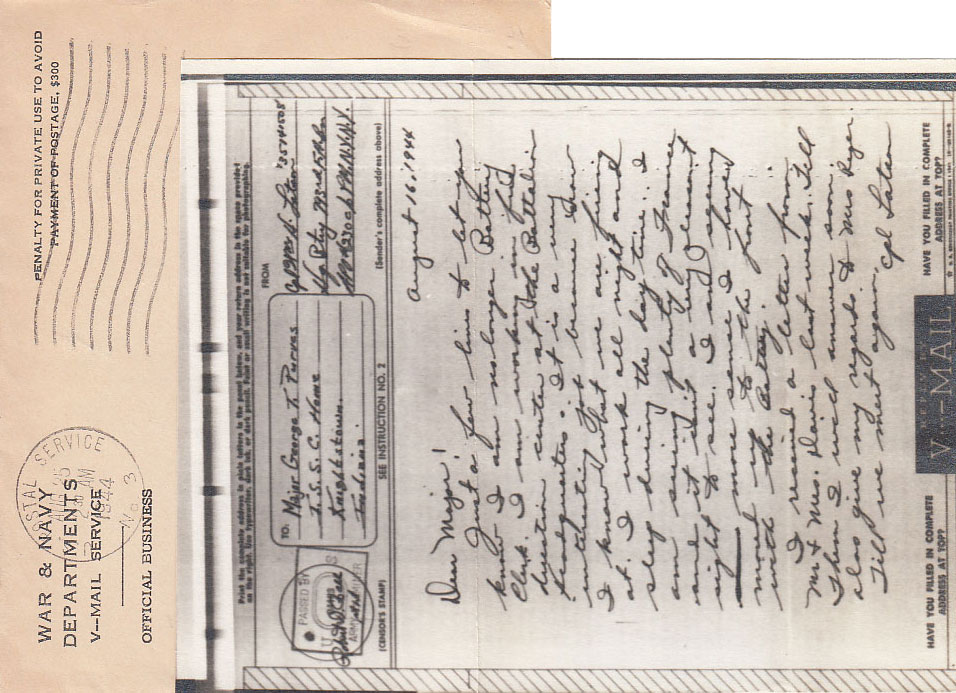 PENALTY FOR PRIVATE USE TO AVOID
PAYMENT OF POSTAGE, $300
POSTAL SERVICE
AM
1944
No 3
WAR & NAVY
DEPARTMENTS
V--MAIL SERVICE
OFFICIAL BUSINESS
Print the complete address in plain letters in the panel below, and your return address in the space provided
on the right. Use typewriter, dark ink, or dark pencil. Faint or small writing is not suitable for photographing.
TO:
Major George T. Purves
I. S. S. C. Home
Knightstown.
Indiana.
FROM
PASSED BY
ARMY EXAMINER
(CENSOR'S STAMP)
SEE INSTRUCTION NO. 2
(Sender's complete address above)
August 16, 1944
Dear Major!
Just a few lines to let you
know I am no longer Battery
Clerk. I am working in fire
direction center at the Battalion
Headquarters. It is a very
interesting job because now
I know what we are firing
at. I work all night and
sleep during the day time. I
am seeing plenty of France
and it isn't a very pleasant
sight to see. I am seeing
more since I have
moved up to the front
with the Battery.
I received a letter from
Mr & Mrs. Davis last week. Tell
them I will answer soon
also give my regards to Mrs
Till we meet again.
Cpl Laton
HAVE YOU FILLED IN COMPLETE
ADDRESS AT TOP?
V--MAIL
HAVE YOU FILLED IN COMPLETE
ADDRESS AT TOP?